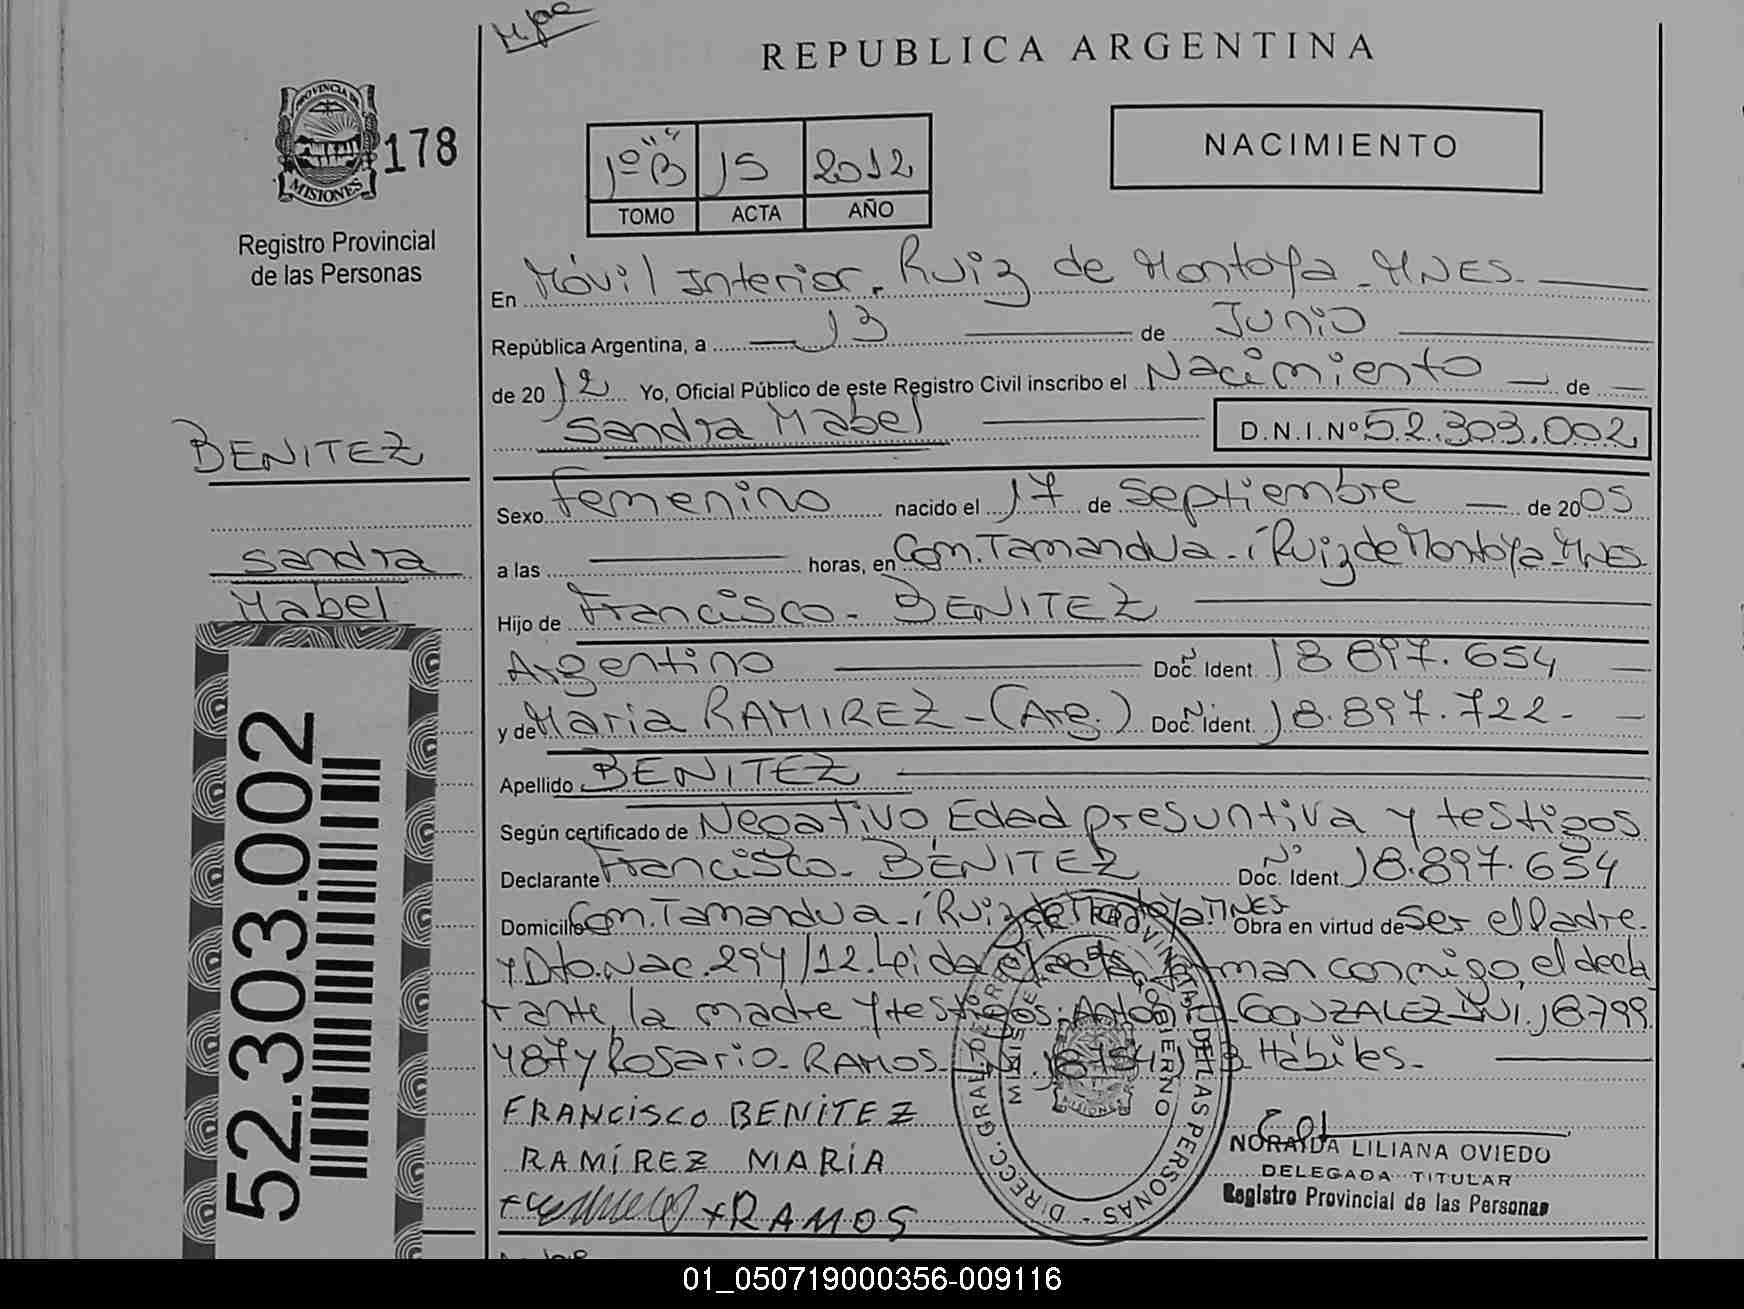 REPUBLICA ARGENTINA
PROVINCIA DE
MISIONES
178
Registro Provincial
de las Personas
1º "B" 15 2012
TOMO ACTA AÑO
NACIMIENTO
En Móvil Interior. Ruiz de Montoya - MNES.
República Argentina, a 13 de Junio
de 2012 Yo, Oficial Público de este Registro Civil inscribo el Nacimiento de
Sandra Mabel D.N.I.Nº 52.303.002
BENITEZ
Sandra
Mabel
52.303.002
Sexo Femenino nacido el 17 de Septiembre de 2005
a las horas, en Com. Tamandua - Ruiz de Montoya - MNES
Hijo de Francisco - BENITEZ
Argentino Doc. Ident. 18 897.654
y de Maria RAMIREZ - (Arg.) Doc. Ident. 18.897.722 -
Apellido BENITEZ
Según certificado de Negativo, Edad presuntiva y testigos
Declarante Francisco - BENITEZ Nº Doc. Ident. 18.897.654
Domicilio Com. Tamandua - Ruiz de Montoya MNES Obra en virtud de ser el Padre.
y Dto. Nac. 294/12. Leida el acta, firman conmigo, el decla
rante, la madre y testigos: GONZALEZ DNI. 18799
487 y Rosario - RAMOS - Hábiles -
FRANCISCO BENITEZ
RAMIREZ MARIA
+ RAMOS
DIRECC. GRAL. DEL REG. PROVINCIAL DE LAS PERSONAS
NORAIDA LILIANA OVIEDO
DELEGADA TITULAR
Registro Provincial de las Personas
01_050719000356-009116